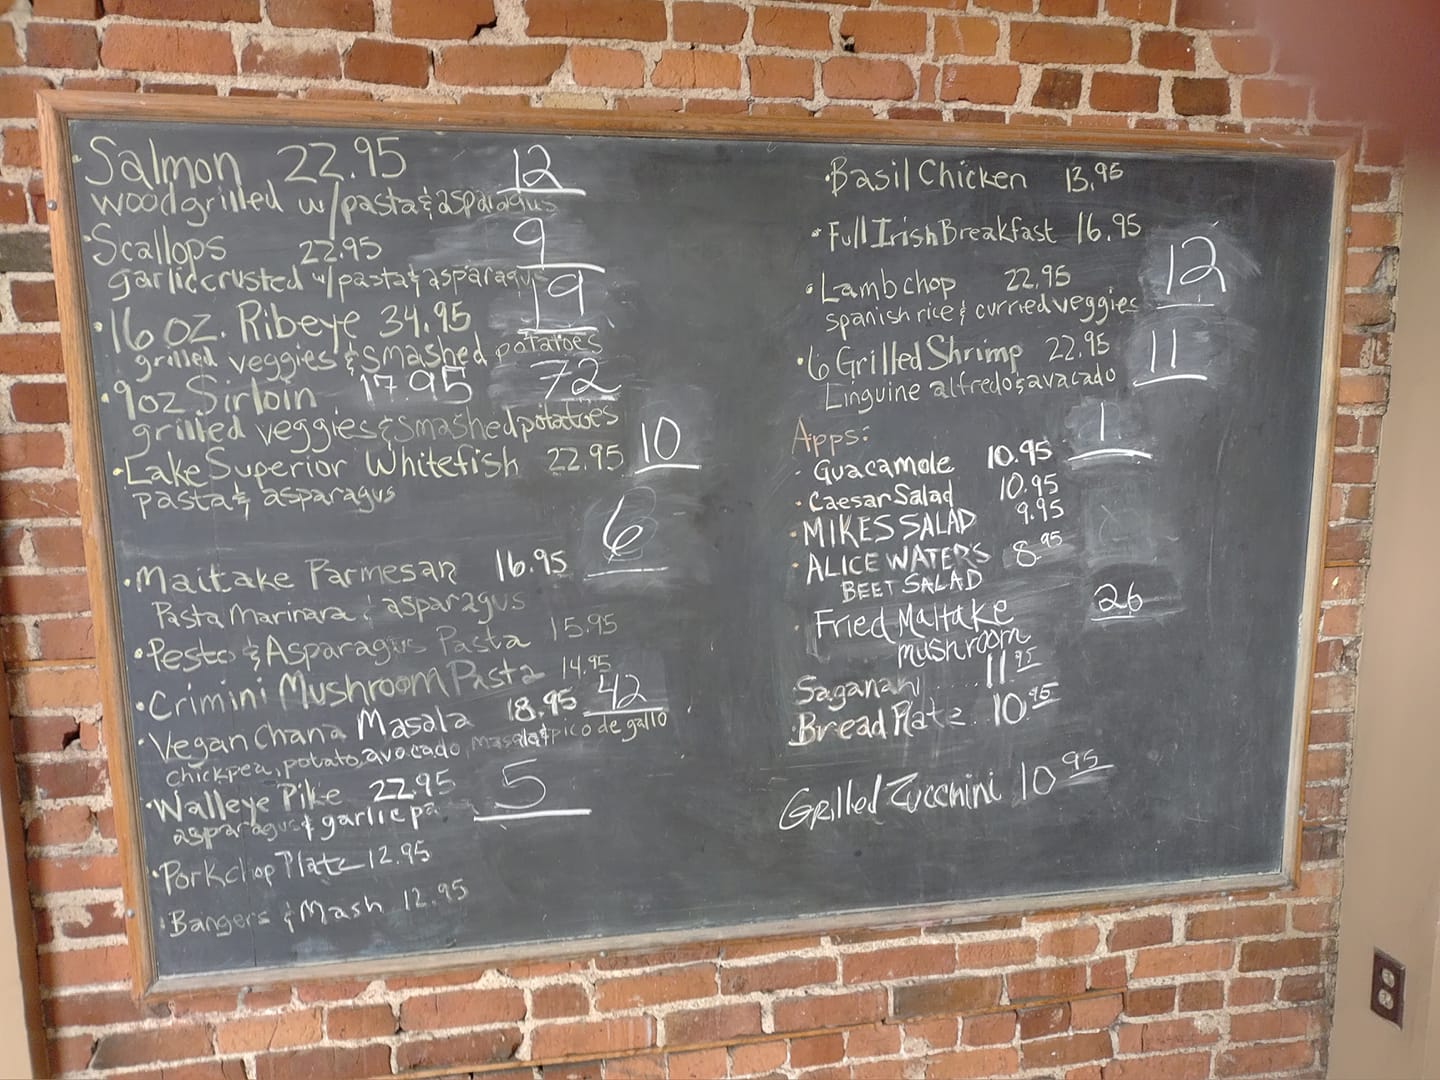 ·Salmon 22.95 12
woodgrilled w/pasta & asparagus
·Scallops 22.95 9
garlic crusted w/pasta & asparagus
·16 oz. Ribeye 34.95 19
grilled veggies & smashed potatoes
·9oz Sirloin 17.95 72
grilled veggies & smashed potatoes
·Lake Superior Whitefish 22.95 10
pasta & asparagus
·Maitake Parmesan 16.95 6
Pasta Marinara & asparagus
·Pesto & Asparagus Pasta 15.95
·Crimini Mushroom Pasta 14.95
·Vegan Chana Masala 18.95 42
chickpea, potato, avocado, masala & pico de gallo
·Walleye Pike 22.95 5
asparagus & garlic pa
·Porkchop Plate 12.95
·Bangers & Mash 12.95
·Basil Chicken 13.95
·Full Irish Breakfast 16.95
·Lamb chop 22.95 12
spanish rice & curried veggies
·6 Grilled Shrimp 22.95 11
Linguine alfredo & avacado
Apps:
·Guacamole 10.95 1
·Caesar Salad 10.95
·MIKES SALAD 9.95
·ALICE WATERS 8.95
BEET SALAD
·Fried Maitake 26
mushroom
Saganaki .... 11.95
Bread Plate.. 10.95
Grilled Zucchini 10.95